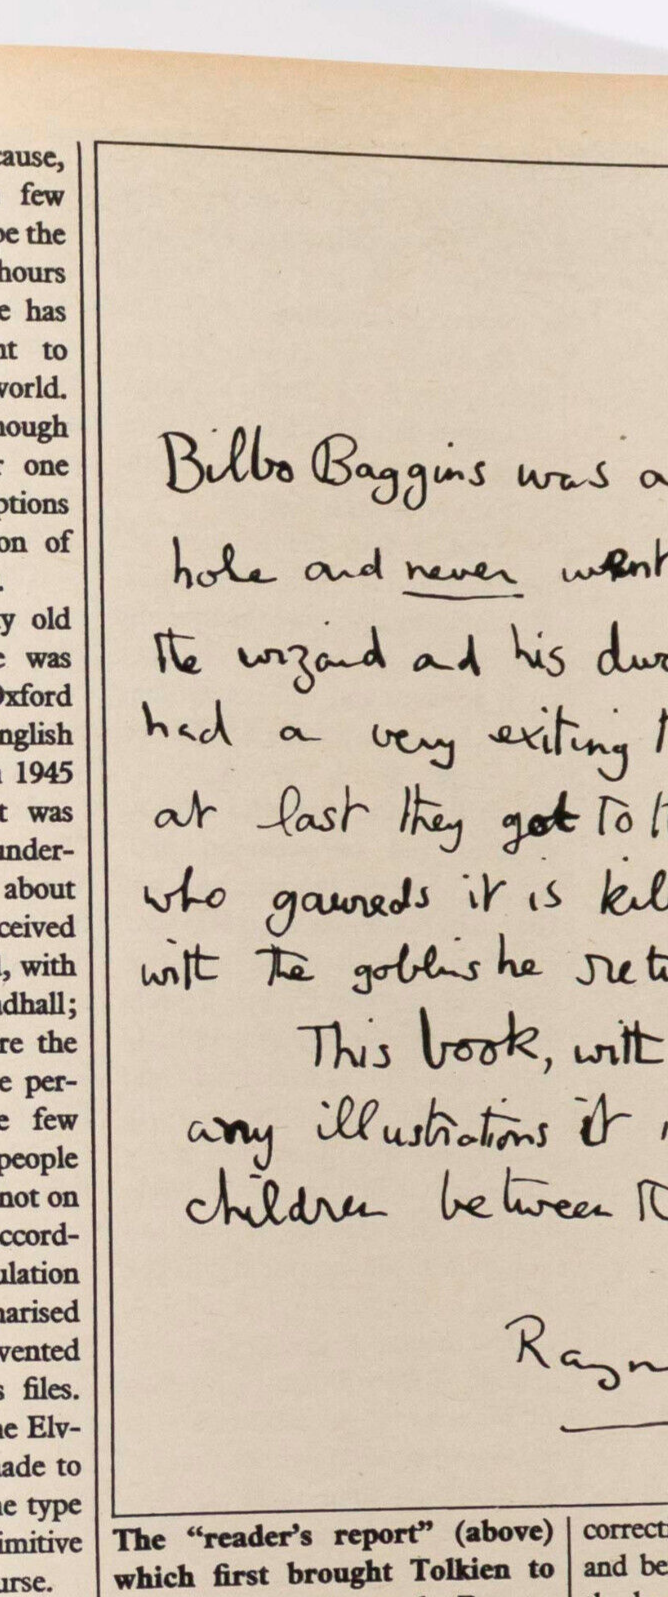 cause,
few
be the
hours
e has
nt to
world.
hough
r one
ptions
on of
.
y old
e was
Oxford
nglish
1945
t was
under-
about
ceived
, with
dhall;
re the
e per-
e few
people
not on
ccord-
ulation
arised
vented
s files.
ne Elv-
ade to
ne type
imitive
urse.
Bilbo Baggins was a
hole and never went
the wizard and his dwa
had a very exiting
at last they got to
who gaureds it is kil
with the goblins he retu
This book, with
any illustrations it
children between
Rayn
The “reader’s report” (above)
which first brought Tolkien to
correcti
and be